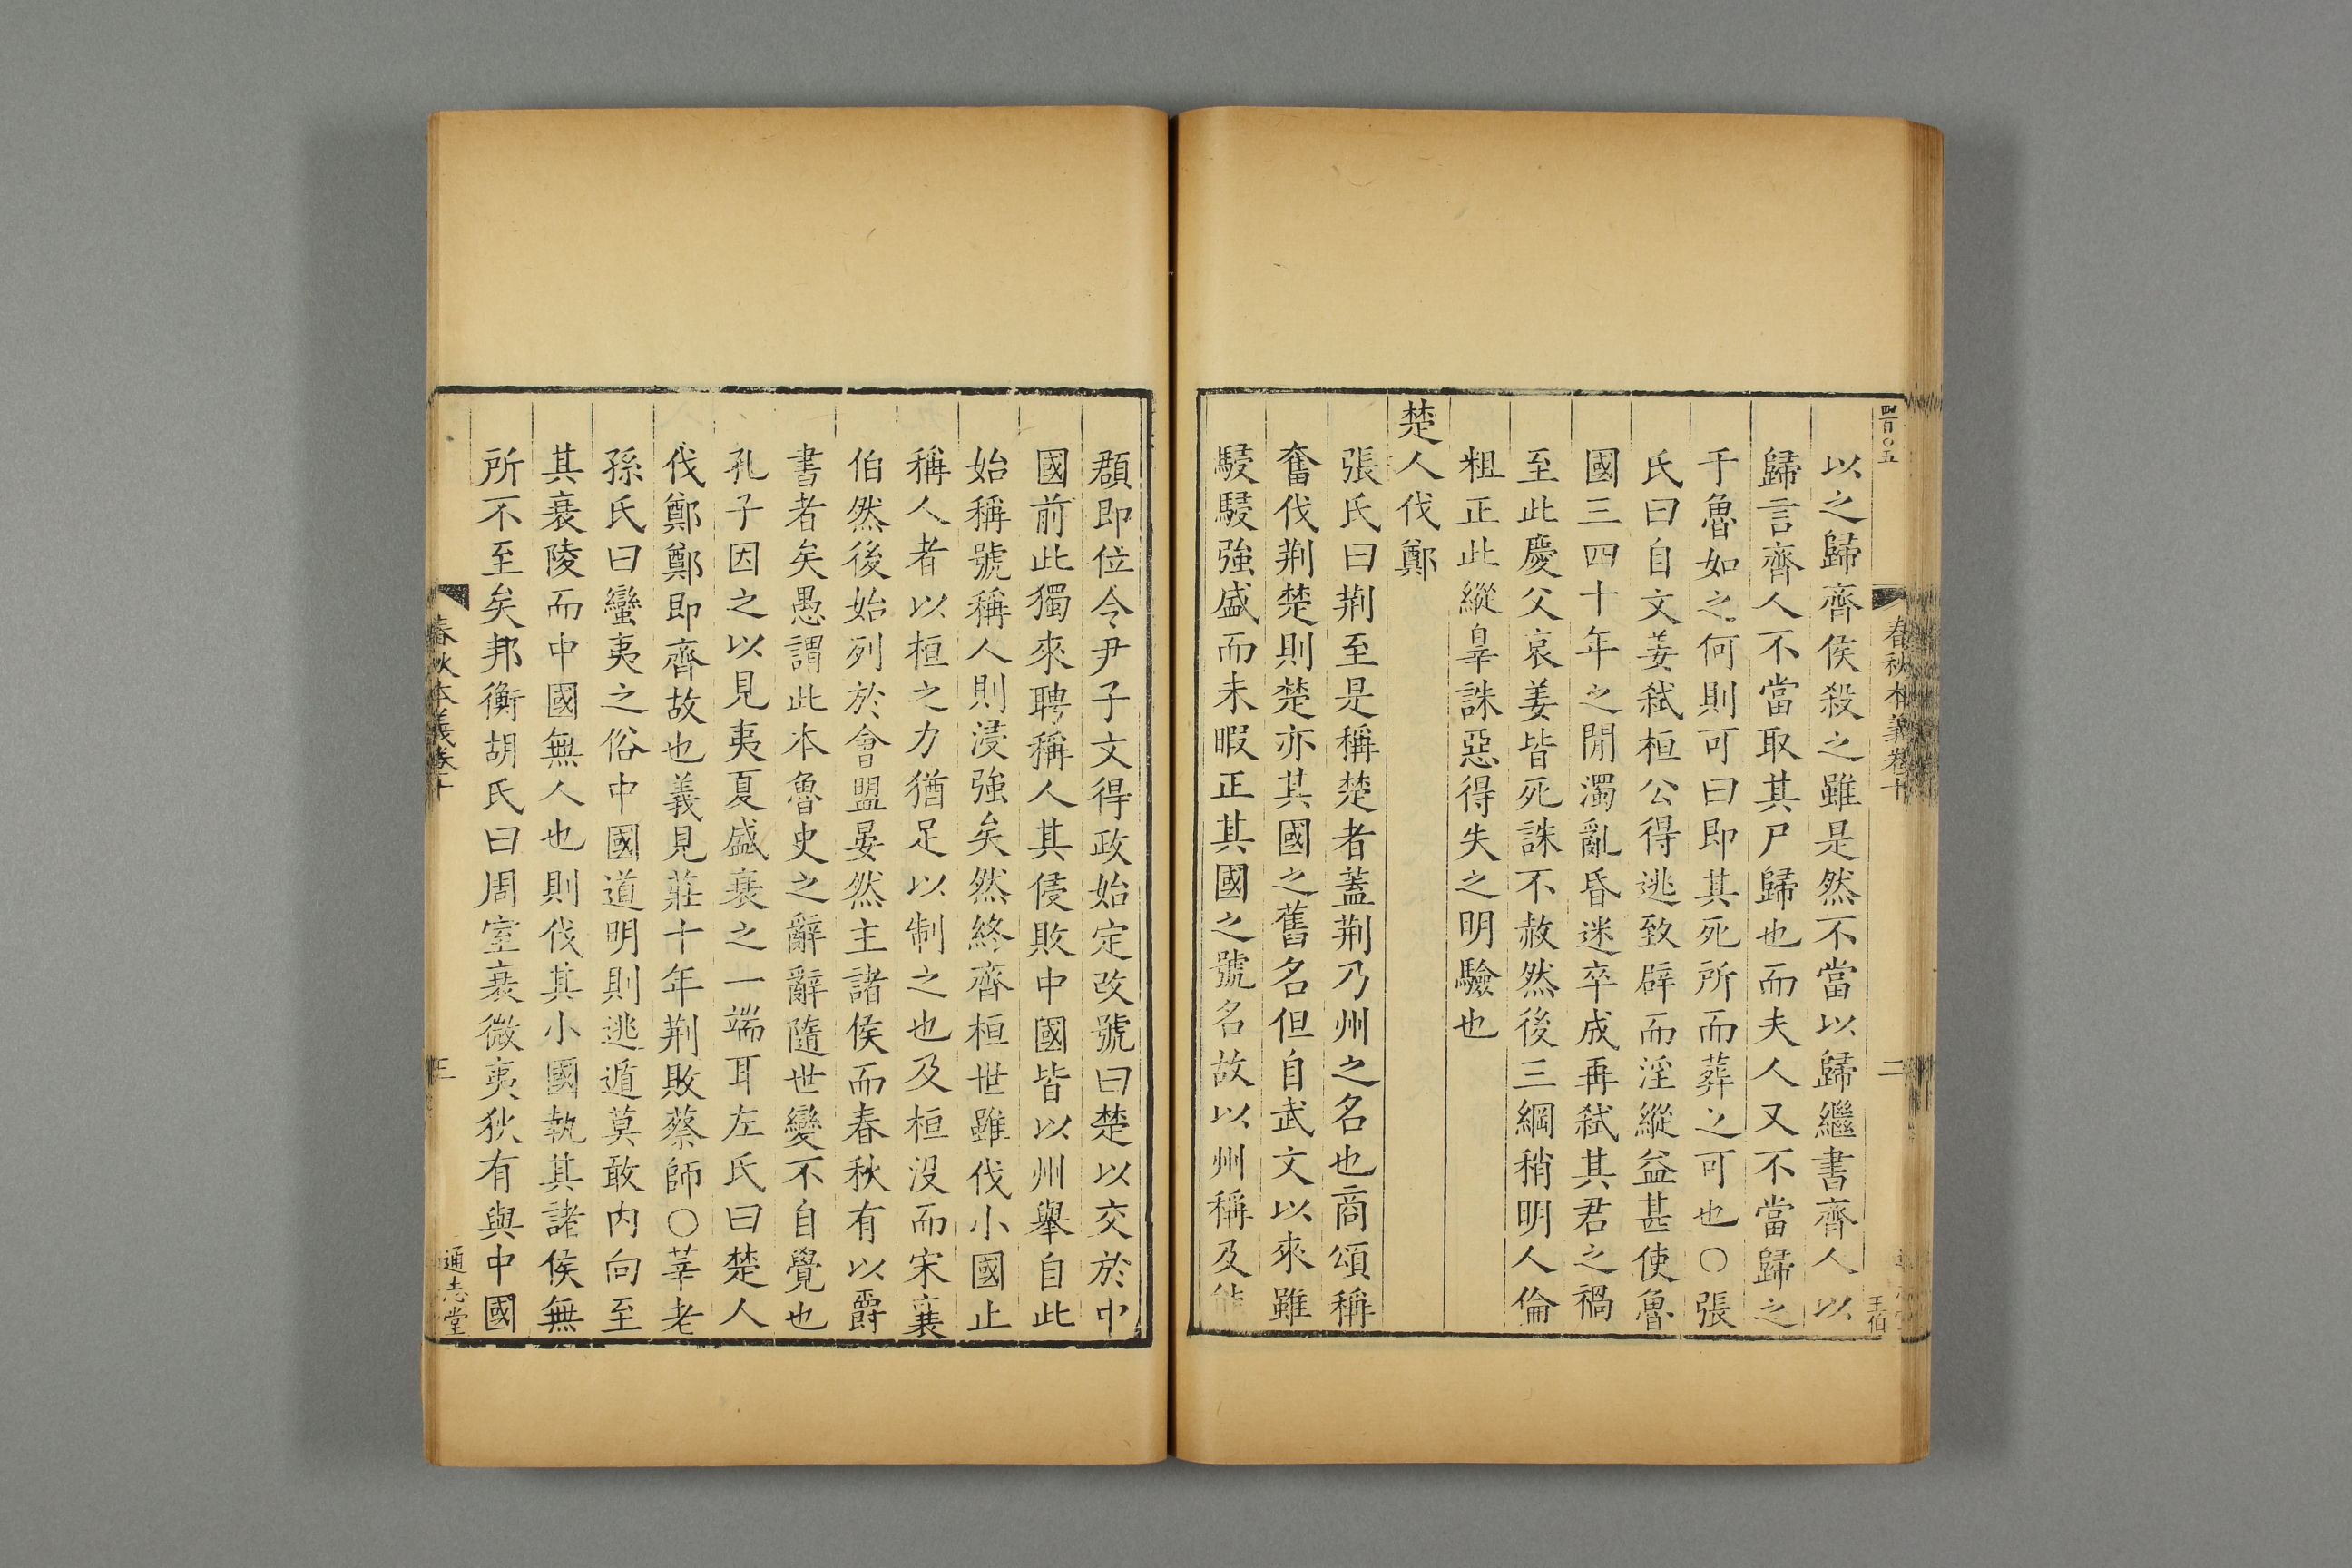 四百○五
春秋本義卷十
二
王伯
以之歸齊侯殺之雖是然不當以歸繼書齊人以
歸言齊人不當取其尸歸也而夫人又不當歸之
于魯如之何則可曰即其死所而葬之可也○張
氏曰自文姜弑桓公得逃致辟而淫縱益甚使魯
國三四十年之閒濁亂昏迷卒成再弑其君之禍
至此慶父哀姜皆死誅不赦然後三綱稍明人倫
粗正此縱辠誅惡得失之明驗也
楚人伐鄭
張氏曰荆至是稱楚者蓋荆乃州之名也商頌稱
奮伐荆楚則楚亦其國之舊名但自武文以來雖
駸駸強盛而未暇正其國之號名故以州稱及
頵即位令尹子文得政始定改號曰楚以交於中
國前此獨來聘稱人其侵敗中國皆以州舉自此
始稱號稱人則浸強矣然終齊桓世雖伐小國止
稱人者以桓之力猶足以制之也及桓沒而宋襄
伯然後始列於會盟晏然主諸侯而春秋有以爵
書者矣愚謂此本魯史之辭辭隨世變不自覺也
孔子因之以見夷夏盛衰之一端耳左氏曰楚人
伐鄭鄭即齊故也義見莊十年荆敗蔡師○莘老
孫氏曰蠻夷之俗中國道明則逃遁莫敢内向至
其衰陵而中國無人也則伐其小國執其諸侯無
所不至矣邦衡胡氏曰周室衰微夷狄有與中國
春秋本義卷十
三
通志堂